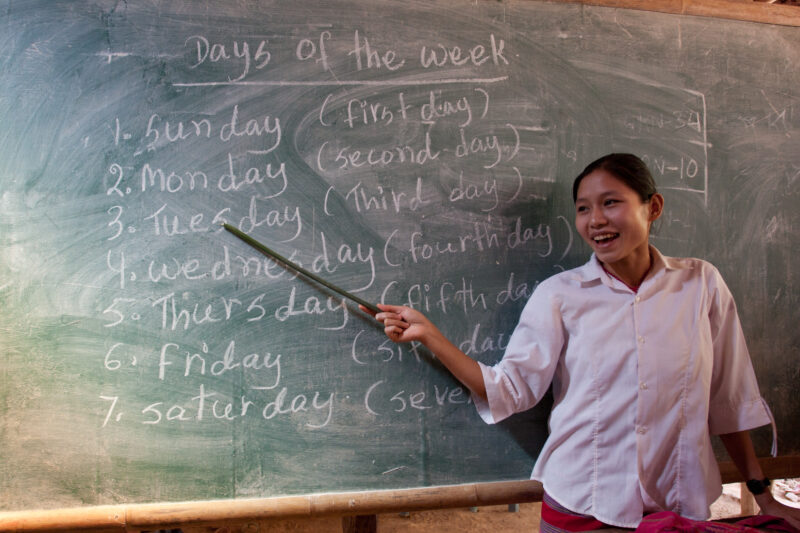 Days of the week.
1. Sunday (first day)
2. Monday (second day.)
3. Tuesday (Third day)
4. Wednesday (fourth day)
5. Thursday (fifth day)
6. Friday
7. saturday.